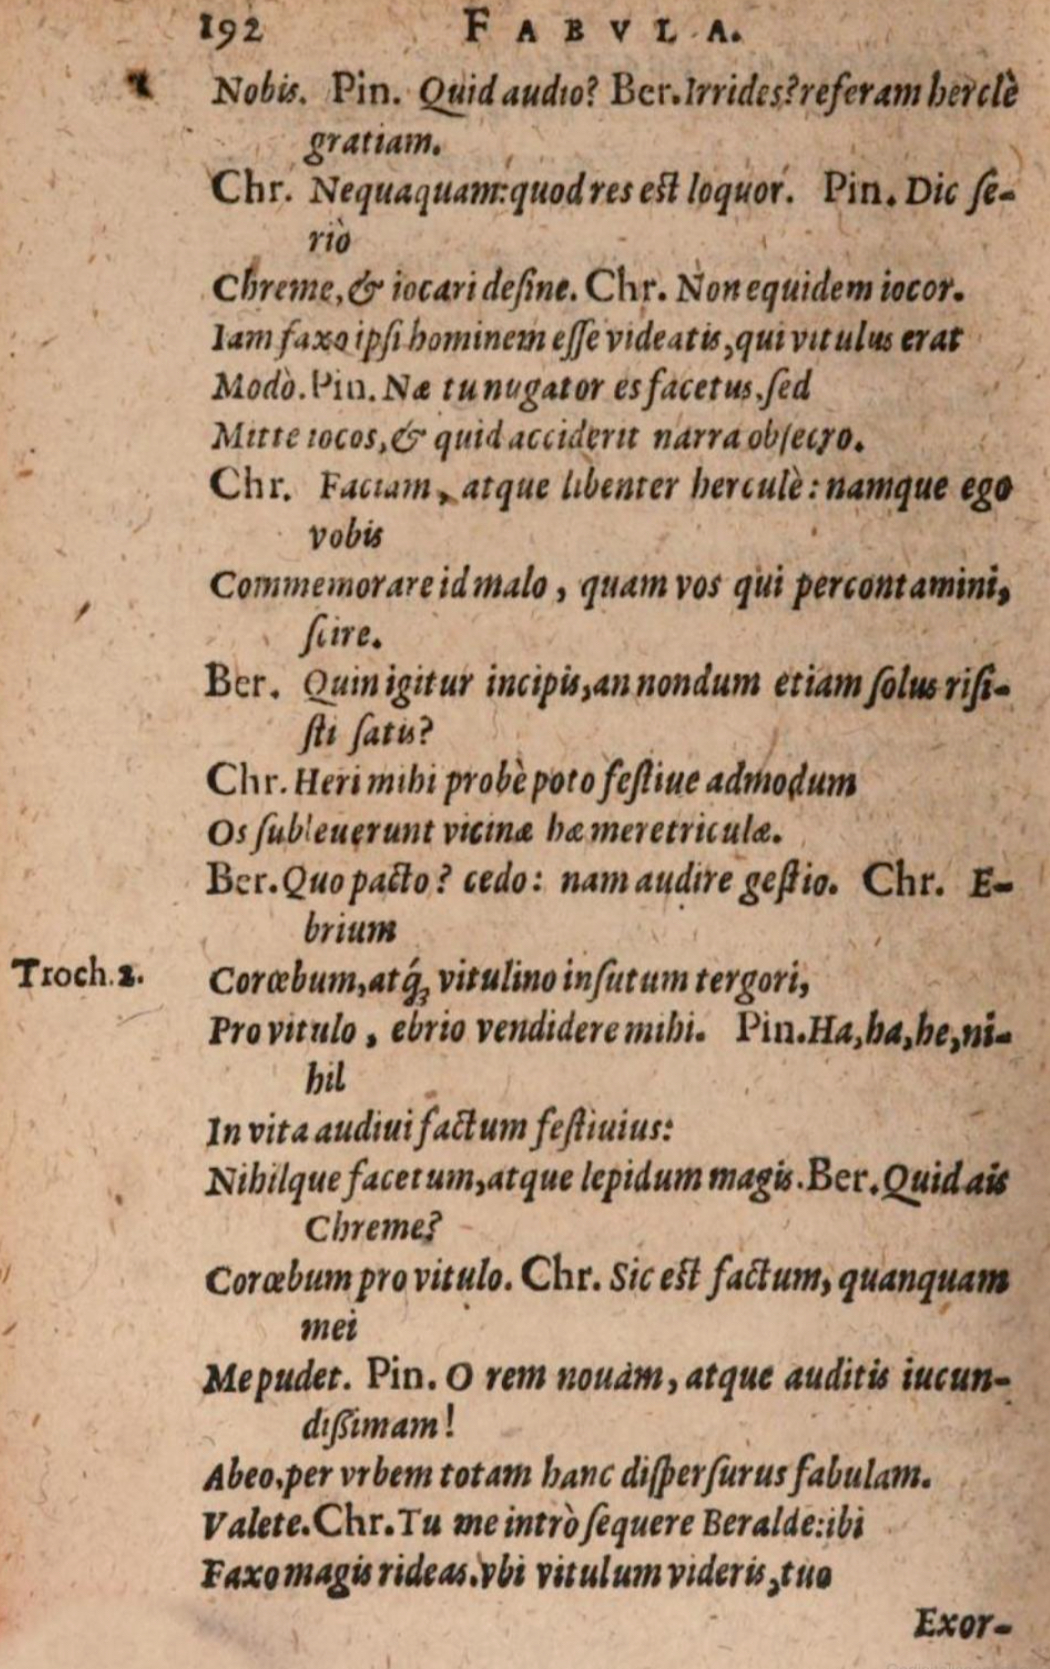 192 FABVLA.
Nobis. Pin. Quid audio? Ber. Irrides? referam herclè
gratiam.
Chr. Nequaquam: quod res est loquor. Pin. Dic se-
riò
Chreme, & iocari desine. Chr. Non equidem iocor.
Iam faxo ipsi hominem esse videatis, qui vitulus erat
Modò. Pin. Næ tu nugator es facetus, sed
Mitte iocos, & quid acciderit narra obsecro.
Chr. Faciam, atque libenter herculè: namque ego
vobis
Commemorare id malo, quam vos qui percontamini,
scire.
Ber. Quin igitur incipis, an nondum etiam solus risi-
sti satis?
Chr. Heri mihi probè poto festiue admodum
Os subleuerunt vicinæ hæ meretriculæ.
Ber. Quo pacto? cedo: nam audire gestio. Chr. E-
brium
Troch. 2. Corœbum, atq́; vitulino insutum tergori,
Pro vitulo, ebrio vendidere mihi. Pin. Ha, ha, he, ni-
hil
In vita audiui factum festiuius:
Nihilque facetum, atque lepidum magis. Ber. Quid ais
Chreme?
Corœbum pro vitulo. Chr. Sic est factum, quanquam
mei
Me pudet. Pin. O rem nouam, atque auditis iucun-
dissimam!
Abeo, per vrbem totam hanc dispersurus fabulam.
Valete. Chr. Tu me intrò sequere Beralde: ibi
Faxo magis rideas, vbi vitulum videris, tuo
Exor-